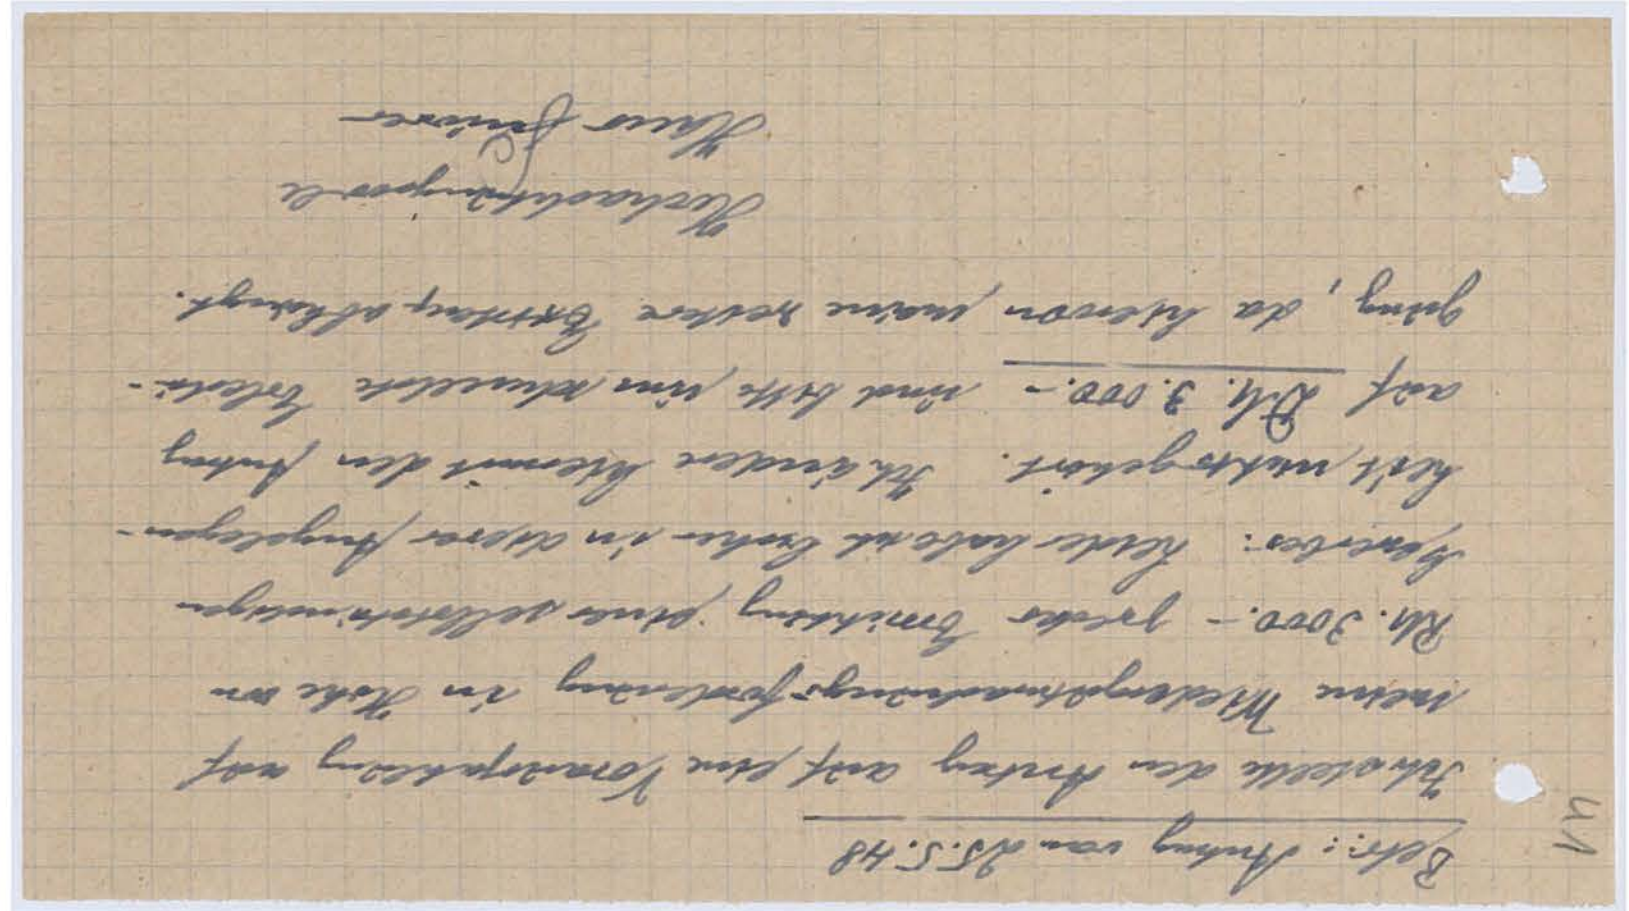 Betr.: Antrag vom 25.5.48
Ich stelle den Antrag auf eine Vorauszahlung auf
meine Wiedergutmachungs-forderung in Höhe von
RM. 3000.- zwecks Errichtung eines selbstständigen
Gewerbes. Leider habe ich bisher in dieser Angelegen-
heit nichts gehört. Ich ändere hiermit den Antrag
auf DM. 3.000.- und bitte um schnellste Erledi-
gung, da hiervon meine weitere Existenz abhängt.
Hochachtungsvoll
Hans